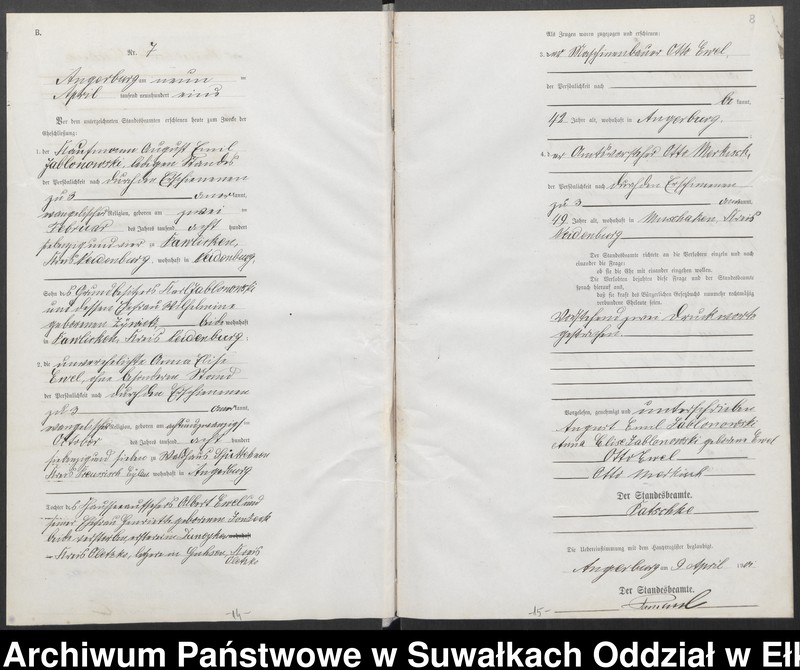 B.
Nr. 7
Angerburg am neun
April tausend neunhundert eins
Vor dem unterzeichneten Standesbeamten erschienen heute zum Zweck der
Eheschließung:
1. der Kaufmann August Emil
Jablonowski, ledigen Standes
der Persönlichkeit nach durch den Erschienenen
zu 3 anerkannt,
evangelischer Religion, geboren am zwei
Februar des Jahres tausend acht hundert
siebenzig und vier zu Pawlicken,
Kreis Neidenburg, wohnhaft in Neidenburg,
Sohn des Grundbesitzers Karl Jablonowski
und dessen Ehefrau Wilhelmine
geborenen beide wohnhaft
in Pawlicken, Kreis Neidenburg.
2. die unverehelichte Anna Elise
Ewel, ohne besonderen Stand
der Persönlichkeit nach durch den Erschienenen
zu 3 anerkannt,
evangelischer Religion, geboren am achtundzwanzigsten
October des Jahres tausend acht hundert
siebenzig und sieben zu
Kreis Preussisch Eylau, wohnhaft in Angerburg
Tochter des Chausseeaufsehers Albert Ewel und
seiner Ehefrau Henriette geborenen
beide verstorben, ersterer in wohnhaft
Kreis Oletzko, letztere in Kreis
Oletzko
-14-
8
Als Zeugen waren zugezogen und erschienen:
3. der Maschinenbauer Otto Ewel
der Persönlichkeit nach
be kannt,
42 Jahre alt, wohnhaft in Angerburg.
4. der Amtsvorsteher Otto Merkisch,
der Persönlichkeit nach durch den Erschienenen
zu 3 anerkannt,
49 Jahre alt, wohnhaft in Muschaken, Kreis
Neidenburg
Der Standesbeamte richtete an die Verlobten einzeln und nach
einander die Frage:
ob sie die Ehe mit einander eingehen wollen.
Die Verlobten bejahten diese Frage und der Standesbeamte
sprach hierauf aus,
daß sie kraft des Bürgerlichen Gesetzbuchs nunmehr rechtmäßig
verbundene Eheleute seien.
Vorstehend zwei Druckworte
gestrichen.
Vorgelesen, genehmigt und unterschrieben
August Emil Jablonowski
Anna Elise Jablonowski geborene Ewel
Otto Ewel
Otto Merkisch
Der Standesbeamte.
Patschke
Die Uebereinstimmung mit dem Hauptregister beglaubigt.
Angerburg am 9 April 1901
Der Standesbeamte.
-15-
Archiwum Państwowe w Suwałkach Oddział w Eł